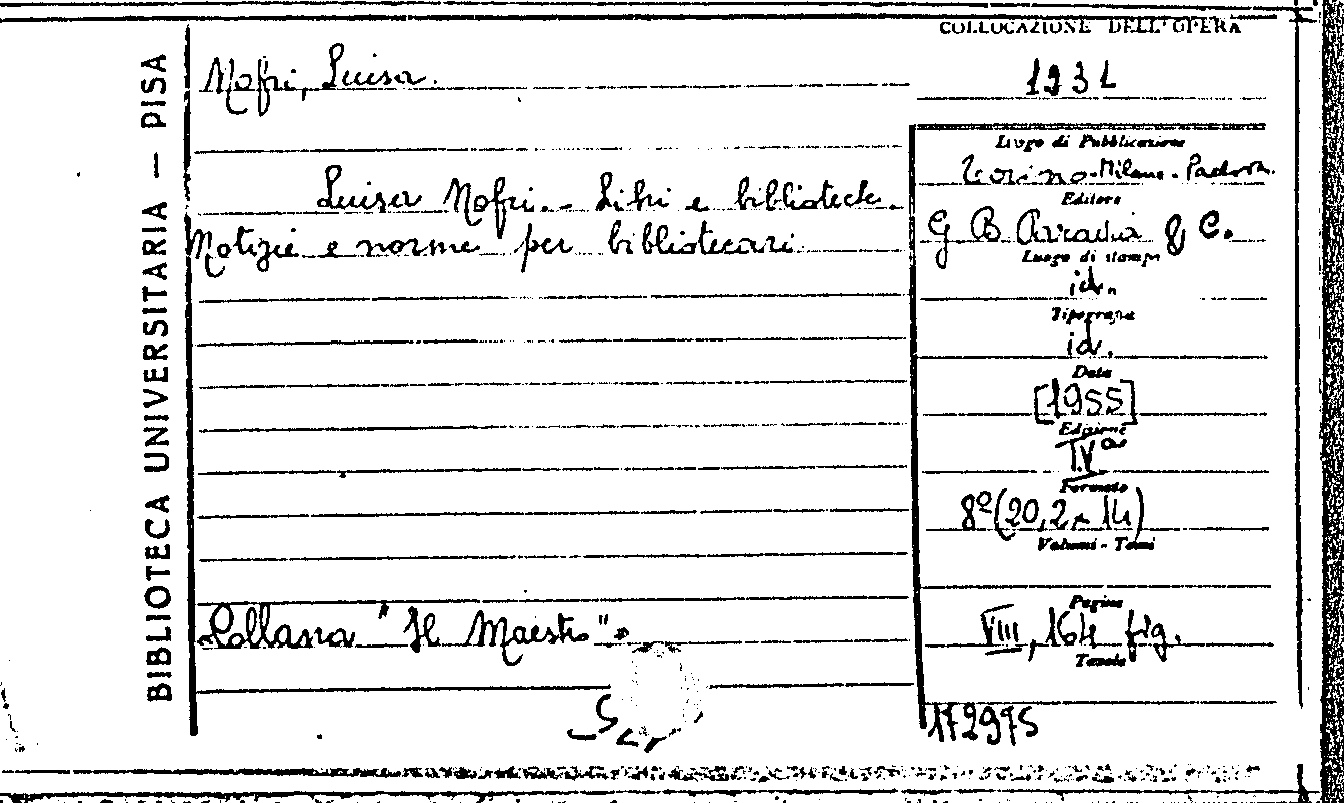 BIBLIOTECA UNIVERSITARIA — PISA
COLLOCAZIONE DELL'OPERA
Nofri, Luisa.
193 L
Luisa Nofri. - Libri e biblioteche.
Notizie e norme per bibliotecari.
Luogo di Pubblicazione
Torino-Milano-Padova
Editore
G B Paravia & C.
Luogo di stampa
id.
Tipografia
id.
Data
[1955]
Edizione
IVa
Formato
8º (20,2 x 14)
Volumi - Tomi
Pagine
VIII, 164 fig.
Tavole
«Collana "Il Maestro"»
172975